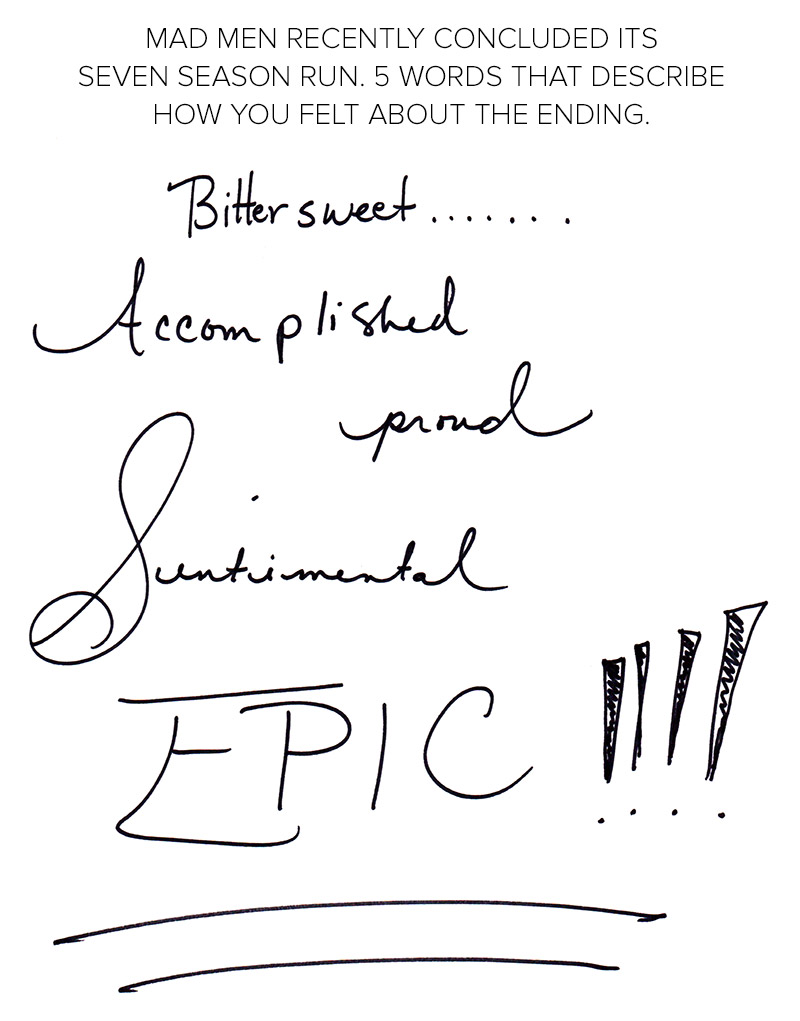 MAD MEN RECENTLY CONCLUDED ITS
SEVEN SEASON RUN. 5 WORDS THAT DESCRIBE
HOW YOU FELT ABOUT THE ENDING.
Bittersweet.......
Accomplished
proud
Sentimental
EPIC !!!!